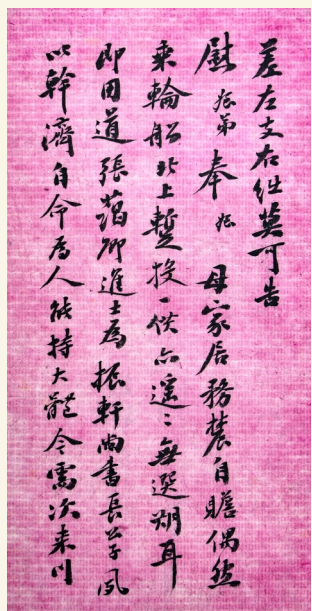 差左支右絀莫可告
慰弟奉母家居務農自贍偶然
乘輪船北上暫投一供亦遙〻無選期耳
即用道張藹卿進士為振軒尚書長公子夙
以幹濟自命為人能持大體今需次來川